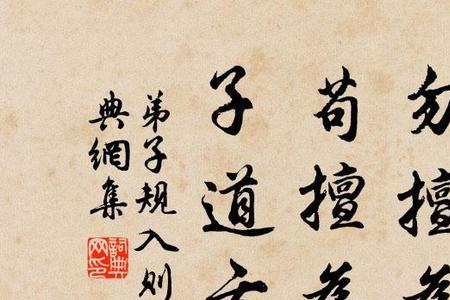 勿擅為
苟擅為
子道
弟子規入則
典網集
詞典网印